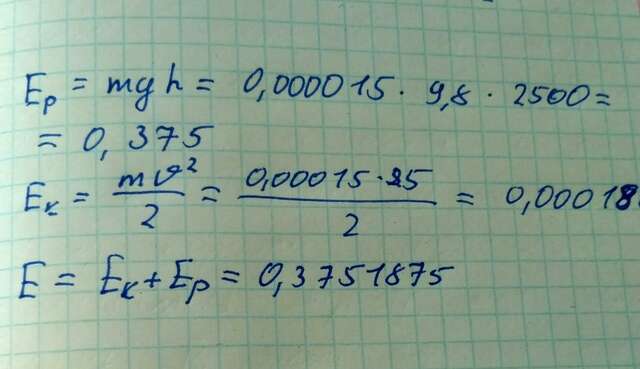 Ep = mgh = 0,000015 · 9,8 · 2500 =
= 0,375
Eк = mv²/2 = 0,00015·25/2 = 0,00018
E = Eк + Ep = 0,3751875